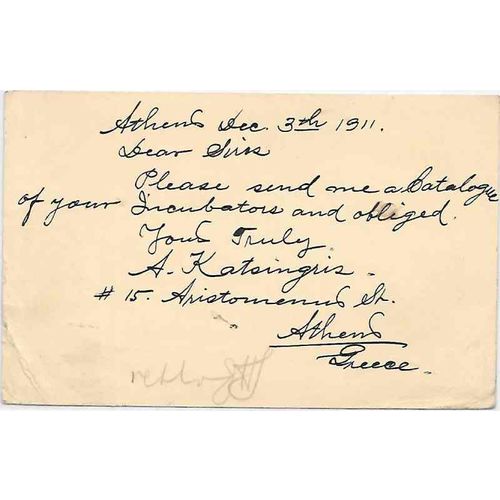 Athens Dec. 3th 1911.
Dear Sirs
Please send me a Catalogue
of your Incubators and obliged.
Yous Truly
A. Katsingris.
# 15. Aristomenus St.
Athens
Greece.